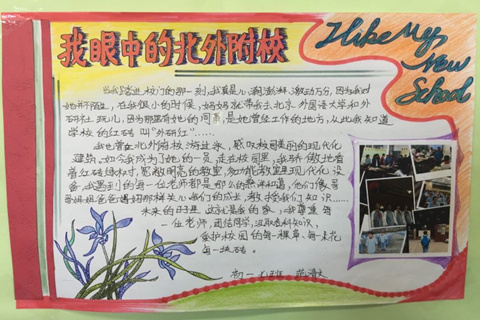 我眼中的北外附校
I like My
New
School
当我踏进校门的那一刻，我真是心潮澎湃，激动万分，因为我对
她并不陌生，在我很小的时候，妈妈就带我去北京外国语大学和外
研社玩儿，因为那里有她的同事，是她曾经工作的地方，从此我知道
学校的红砖叫“外研红”……
我也曾在北外附校游过泳，感叹校园美丽的现代化
建筑，如今我成为了她的一员，走在校园里，我骄傲地看
着红砖绿树，宽敞明亮的教室，多功能教室里现代化设
备，我遇到的每一位老师都是那么的热情和蔼，他们像哥
哥姐姐爸爸妈妈那样关心我们的成长，教授我们知识……
未来的日子里，这就是我的家，我尊重每
一位老师，团结同学，汲取各科知识，
爱护校园的每一棵草、每一朵花
每一块砖。
初一